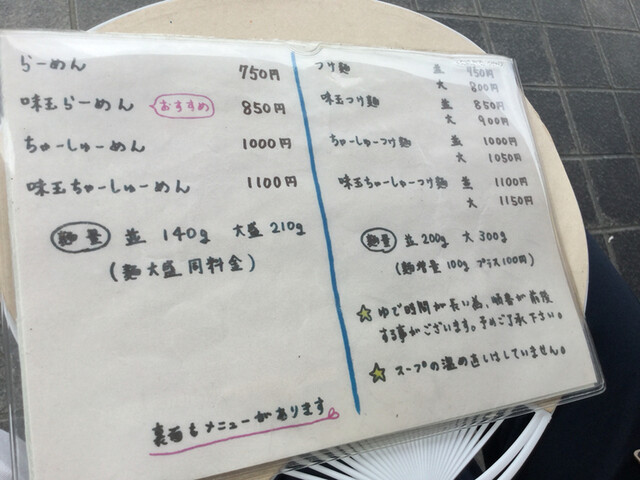 らーめん 750円
味玉らーめん おすすめ 850円
ちゃーしゅーめん 1000円
味玉ちゃーしゅーめん 1100円
麺量 並 140g 大盛 210g
(麺大盛同料金)
裏面もメニューがあります
つけ麺 並 750円
大 800円
味玉つけ麺 並 850円
大 900円
ちゃーしゅーつけ麺 並 1000円
大 1050円
味玉ちゃーしゅーつけ麺 並 1100円
大 1150円
麺量 並 200g 大 300g
(麺増量 100g プラス100円)
☆ ゆで時間が長い為、順番が前後
する事がございます。予めご了承下さい。
☆ スープの温め直しはしていません。